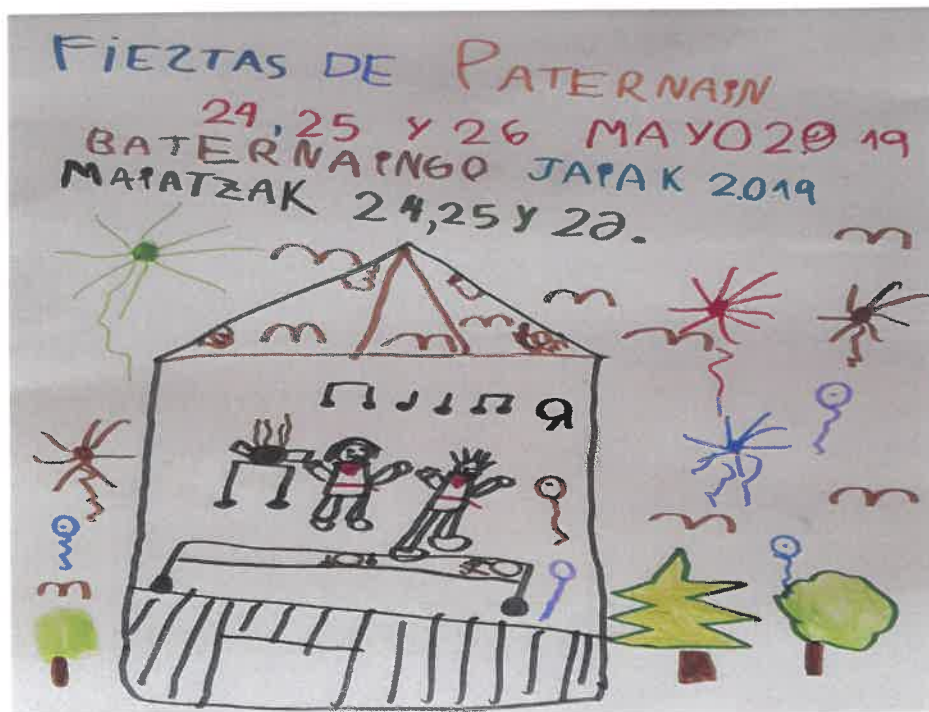 FiEZTAS DE PATERNAIN
24,25 Y 26 MAYO 2019
BATERNAINGO JAIAK 2019
MAIATZAK 24,25 Y 26.